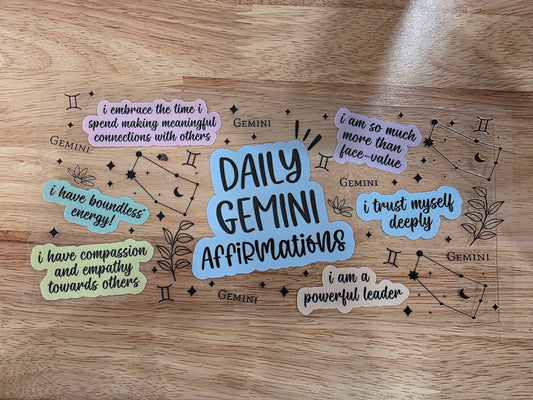 i embrace the time i
spend making meaningful
connections with others
Gemini
i am so much
more than
face-value
Gemini
Gemini
i have boundless
energy!
DAILY
GEMINI
AFFIRMATIONS
i trust myself
deeply
i have compassion
and empathy
towards others
Gemini
Gemini
i am a
powerful leader